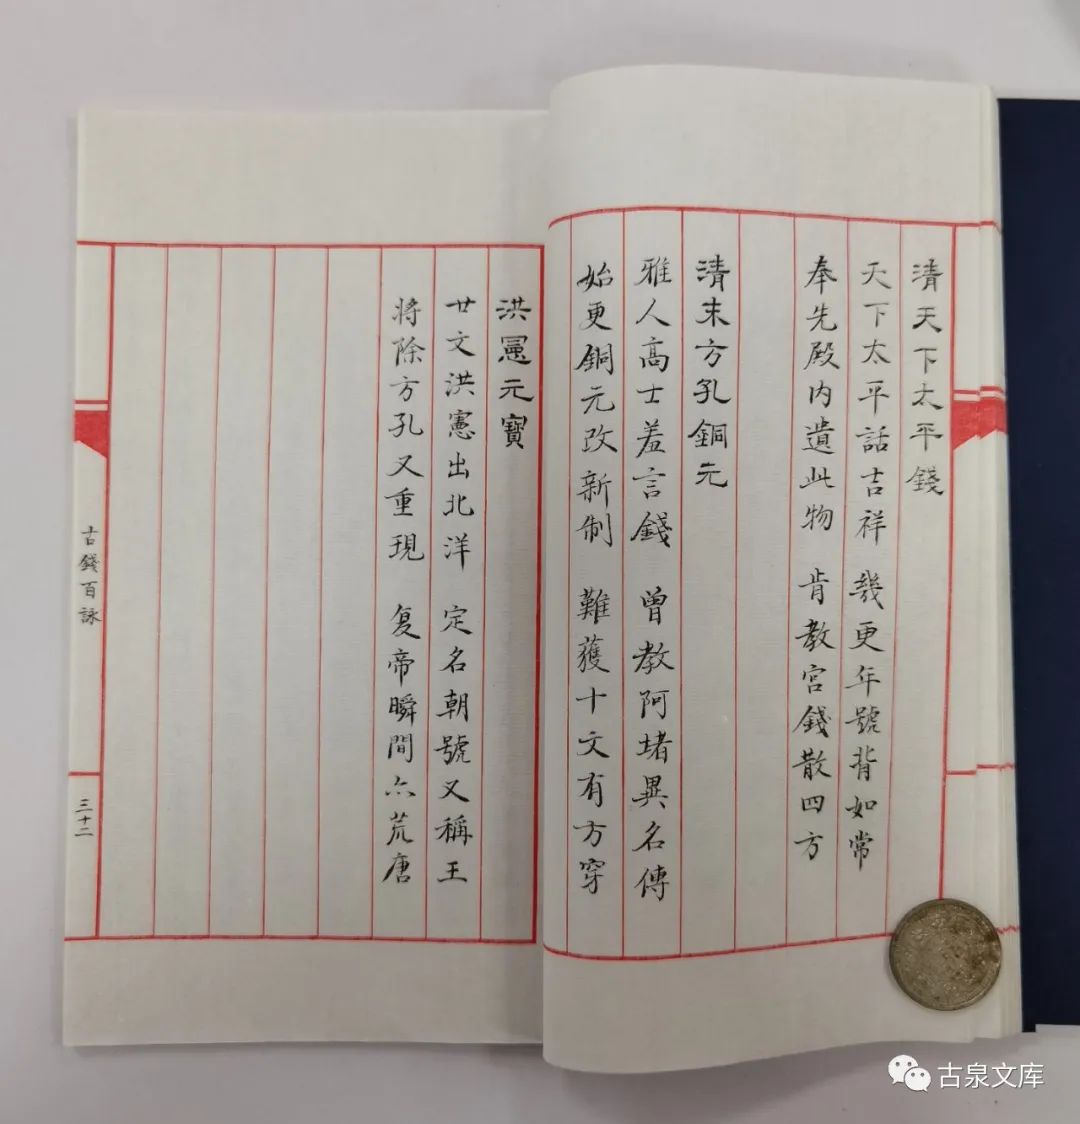 清天下太平錢
天下太平話吉祥 幾更年號背如常
奉先殿內遺此物 肯教宮錢散四方
清末方孔銅元
雅人高士羞言錢 曾教阿堵異名傳
始更銅元改新制 難獲十文有方穿
洪憲元寶
廿文洪憲出北洋 定名朝號又稱王
將除方孔又重現 复帝瞬間亦荒唐
古錢百詠
三十二
古泉文库